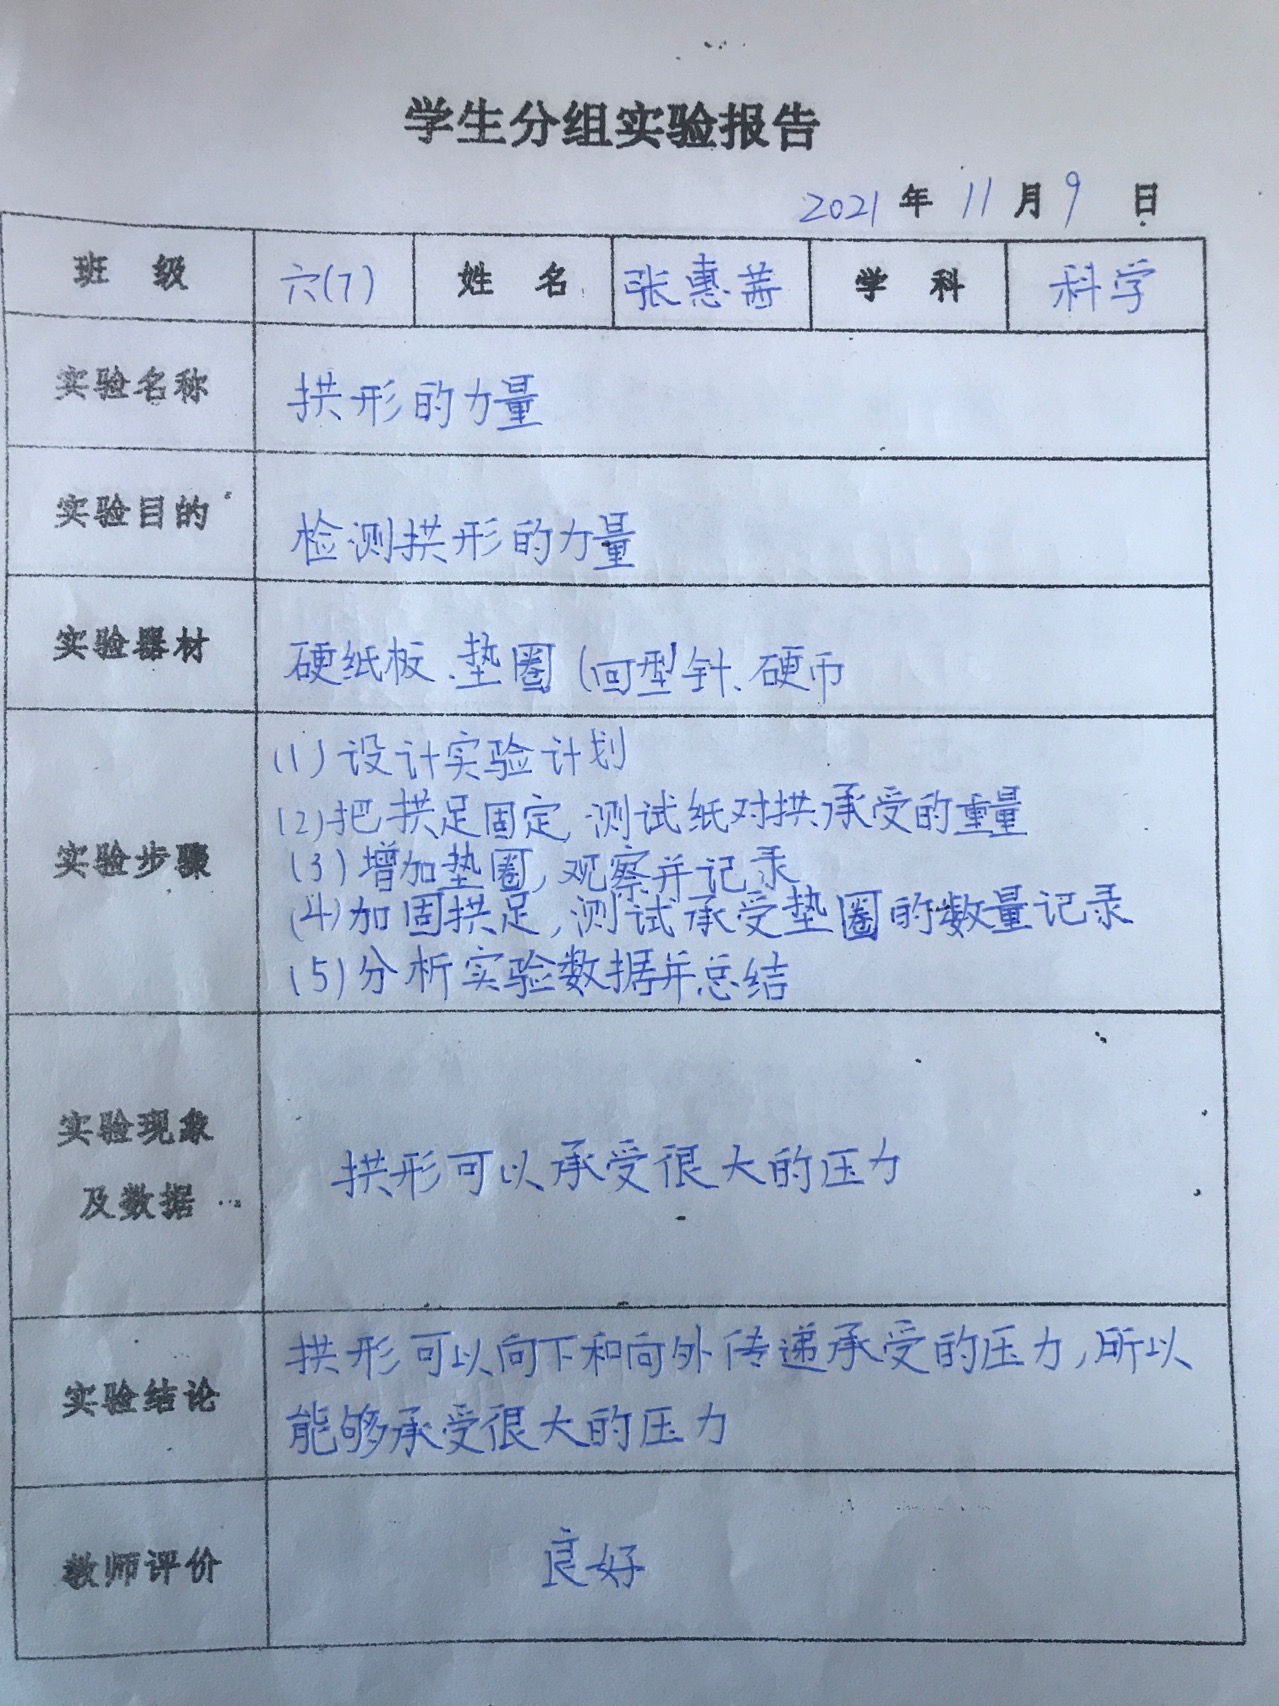 学生分组实验报告
2021年11月9日
班级 六(7) 姓名 张惠茜 学科 科学
实验名称 拱形的力量
实验目的 检测拱形的力量
实验器材 硬纸板、垫圈(回型针、硬币
实验步骤 (1)设计实验计划
(2)把拱足固定,测试纸对拱承受的重量
(3)增加垫圈,观察并记录
(4)加固拱足,测试承受垫圈的数量记录
(5)分析实验数据并总结
实验现象
及数据 拱形可以承受很大的压力
实验结论 拱形可以向下和向外传递承受的压力,所以
能够承受很大的压力
教师评价 良好